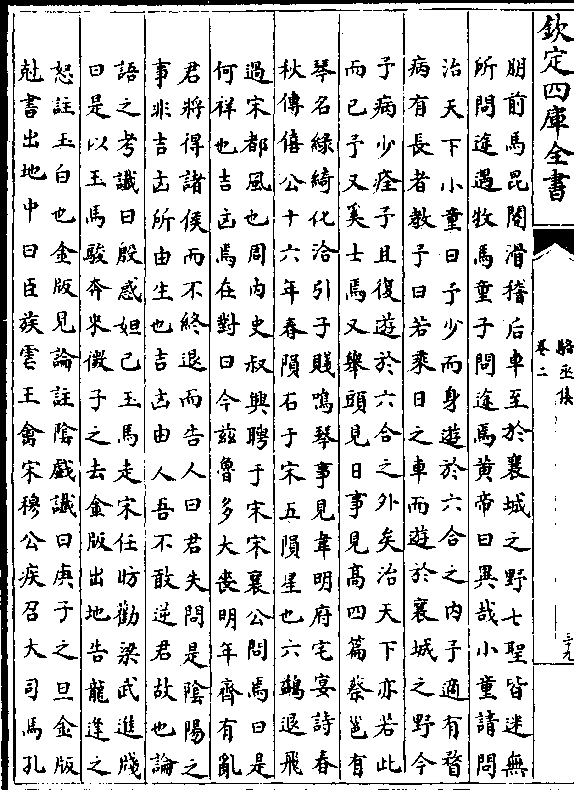 欽定四庫全書
駱丞集
卷二
朋前馬昆閽滑稽后車至於襄城之野七聖皆迷無
所問塗遇牧馬童子問途焉黄帝曰異哉小童請問
治天下小童曰予少而身遊於六合之内予適有瞀
病有長者教予曰若乗日之車而遊於襄城之野今
予病少痊予且復遊於六合之外矣治天下亦若此
而已予又奚士焉又舉頭見日事見髙四篇蔡邕有
琴名緑綺化洽引子賤鳴琴事見韋明府宅宴詩春
秋傳僖公十六年春隕石于宋五隕星也六鷁退飛
過宋都風也周内史叔興聘于宋宋襄公問焉曰是
何祥也吉凶焉在對曰今兹魯多大喪明年齊有亂
君將得諸侯而不終退而告人曰君失問是陰陽之
事非吉凶所由生也吉凶由人吾不敢逆君故也論
語之考䜟曰殷惑妲己玉馬走宋任昉勸梁武進牋
曰是以玉馬駿奔來㣲子之去金版出地告龍逄之
恕註玉白也金版見論註陰戯䜟曰庚子之旦金版
尅書出地中曰臣族雲王禽宋穆公疾召大司馬孔